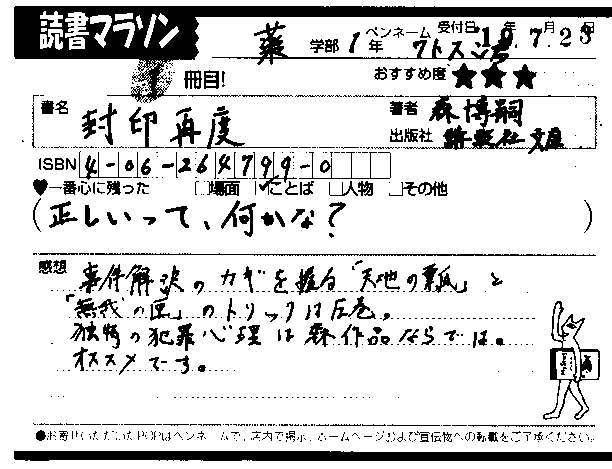 読書マラソン
薬 学部 1年 ペンネーム アトスン君 受付日 19年7月23日
1冊目! おすすめ度 ★★★
書名 封印再度
著者 森博嗣
出版社 講談社文庫
ISBN 4-06-264799-0
♥一番心に残った □場面 ☑ことば □人物 □その他
(正しいって、何かな?)
感想 事件解決のカギを握る「天地の瓢」と
「無我の匣」のトリックは圧巻。
独特の犯罪心理は森作品ならでは。
オススメです。
●お寄せいただいたPOPはペンネームで、店内で掲示、ホームページおよび宣伝物への転載をご了承ください。